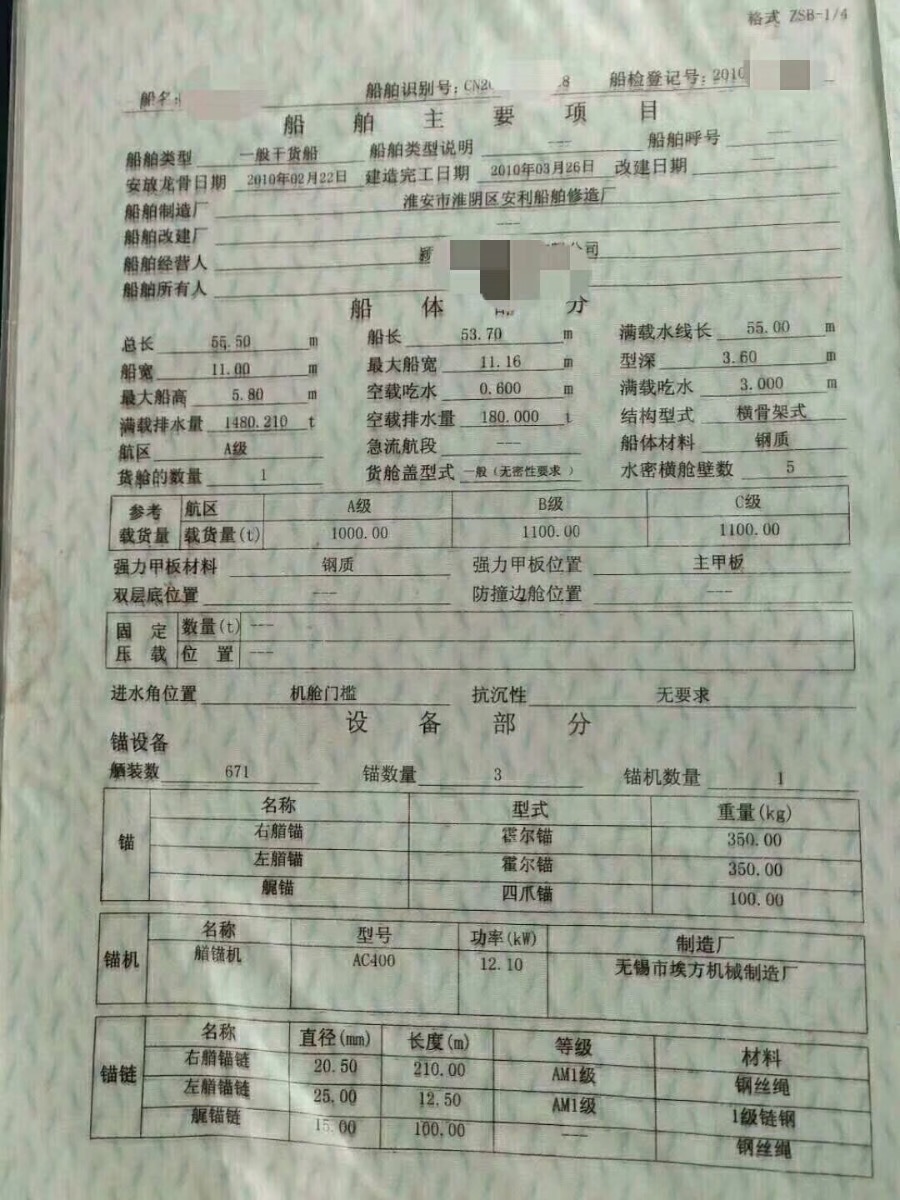 格式 ZSB-1/4
船名: 船舶识别号: CN20 8 船检登记号: 2010
船舶主要项目
船舶类型 一般干货船 船舶类型说明 --- 船舶呼号 ---
安放龙骨日期 2010年02月22日 建造完工日期 2010年03月26日 改建日期 ---
船舶制造厂 淮安市淮阴区安利船舶修造厂
船舶改建厂 ---
船舶经营人 颍 公司
船舶所有人
船体部分
总长 55.50 m 船长 53.70 m 满载水线长 55.00 m
船宽 11.00 m 最大船宽 11.16 m 型深 3.60 m
最大船高 5.80 m 空载吃水 0.600 m 满载吃水 3.000 m
满载排水量 1480.210 t 空载排水量 180.000 t 结构型式 横骨架式
航区 A级 急流航段 --- 船体材料 钢质
货舱的数量 1 货舱盖型式 一般(无密性要求) 水密横舱壁数 5
参考 航区 A级 B级 C级
载货量 载货量(t) 1000.00 1100.00 1100.00
强力甲板材料 钢质 强力甲板位置 主甲板
双层底位置 --- 防撞边舱位置 ---
固定 数量(t) ---
压载 位置 ---
进水角位置 机舱门槛 抗沉性 无要求
设备部分
锚设备
舾装数 671 锚数量 3 锚机数量 1
锚 名称 型式 重量(kg)
右艏锚 霍尔锚 350.00
左艏锚 霍尔锚 350.00
艉锚 四爪锚 100.00
锚机 名称 型号 功率(kW) 制造厂
艏锚机 AC400 12.10 无锡市埃方机械制造厂
锚链 名称 直径(mm) 长度(m) 等级 材料
右艏锚链 20.50 210.00 AM1级 钢丝绳
左艏锚链 25.00 12.50 AM1级 1级链钢
艉锚链 15.00 100.00 --- 钢丝绳